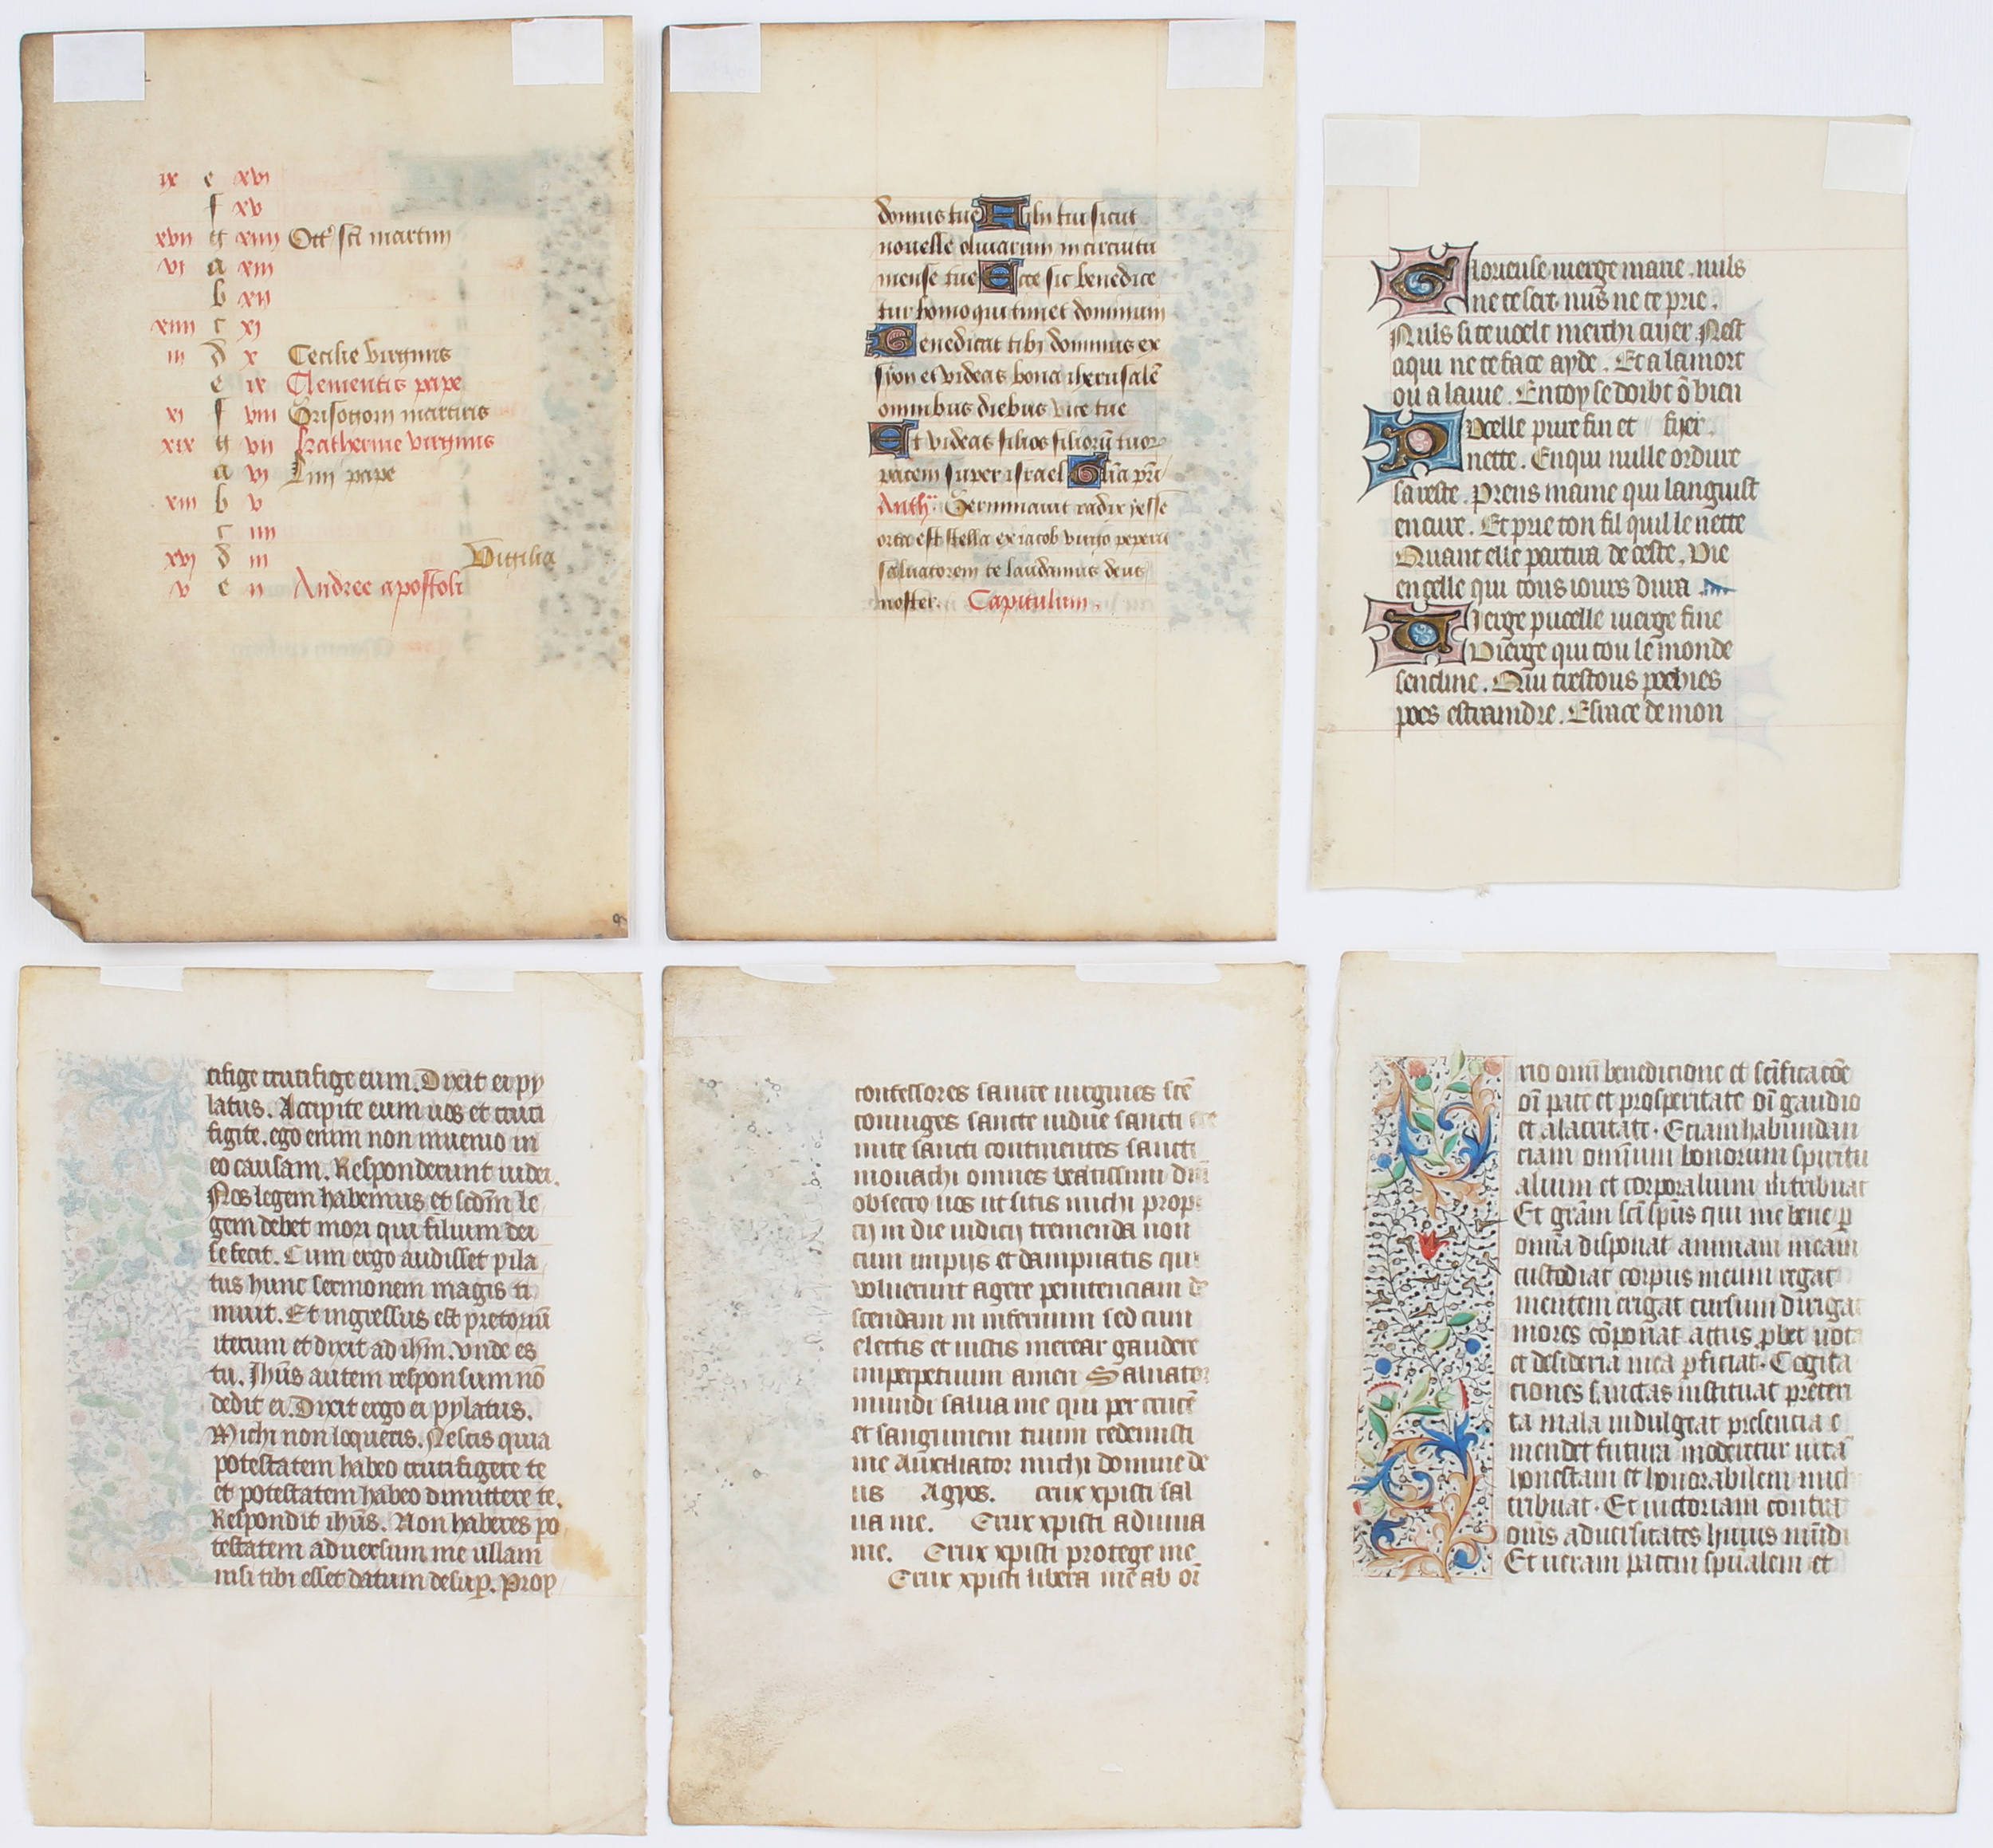 ix e xvi
f xv
xvii g xiiii Oct' sci martini
vi a xiii
b xii
xiiii c xi
iii d x Cecilie virginis
e ix Clementis pape
xi f viii Grisogoni martiris
xix g vii Katherine virginis
a vi Lini pape
xiii b v
c iiii
xvi d iii Vigilia
v e ii Andree apostoli
domus tue Filii tui sicut
nouelle oliuarum in circuitu
mense tue Ecce sic benedice
tur homo qui timet dominum
Benedicat tibi dominus ex
syon et videas bona iherusalē
omnibus diebus vite tue
Et videas filios filiorū tuor
pacem super israel Glīa pri
Anth. Germinauit radix iesse
orta est stella ex iacob virgo peperit
saluatorem te laudamus deus
noster. Capitulum.
Glorieuse uierge marie. nuls
ne te sert. nuls ne te prie.
Nuls si te uoelt merchi crijer. Nest
a qui ne te face ayde. Et a la mort
ou a la uie. En toy se doibt ō bien
fijer.
Pucelle pure fin et
nette. En qui nulle ordure
sareste. Prens mame qui languist
en cure. Et prie ton fil quil le nette
Quant elle partira de ceste. Vie
en celle qui tous iours dura
Vierge pucelle uierge fine
Vierge qui tou le monde
sencline. Qui trestous pechies
poes estraindre. Esrace de mon
cifige crucifige eum. Dixit ei py
latus. Accipite eum uos et cruci
figite. ego enim non inuenio in
eo causam. Responderunt iudei.
Nos legem habemus et scdm le
gem debet mori quia filium dei
se fecit. Cum ergo audisset pila
tus hunc sermonem magis ti
muit. Et ingressus est pretoriū
iterum et dixit ad ihm. vnde es
tu. Ihūs autem responsum nō
dedit ei. Dixit ergo ei pylatus.
Michi non loqueris. Nescis quia
potestatem habeo crucifigere te
et potestatem habeo dimittere te.
Respondit ihūs. Non haberes po
testatem aduersum me ullam
nisi tibi esset datum desup. Prop
confessores sancte uirgines scē
coniuges sancte uidue sancti
mite sancti continentes sancti
monachi omnes beatissimi
obsecro uos ut sitis michi prop
cij in die iudicij tremenda non
cum impijs et dampnatis qui
voluerunt agere penitenciam de
scendam in infernum sed cum
electis et iustis merear gaudere
imperpetuum amen Saluator
mundi salua me qui per crucē
et sanguinem tuum redemisti
me Auxiliator michi domine de
us Agyos. crux xpisti sal
ua me. Crux xpisti adiuua
me. Crux xpisti protege me
Crux xpisti libera mē ab oī
rio omī benedictione et scīficacōe
oī pace et prosperitate oī gaudio
et alacritate. Eciam habundan
ciam omnium bonorum spiritu
alium et corporalium tribuat
Et grām scī spūs qui me bene p
omīa disponat animam meam
custodiat corpus meum regat
mentem erigat cursum dirigat
mores cōponat actus pbet uota
et desideria mea pficiat. Cogita
ciones sanctas instituat preteri
ta mala indulgeat presencia e
mendet futura moderetur uitā
honestam et honorabilem mich
tribuat. Et uictoriam contra
omīs aduersitates huius mūdi
Et ueram pacem spūalem et